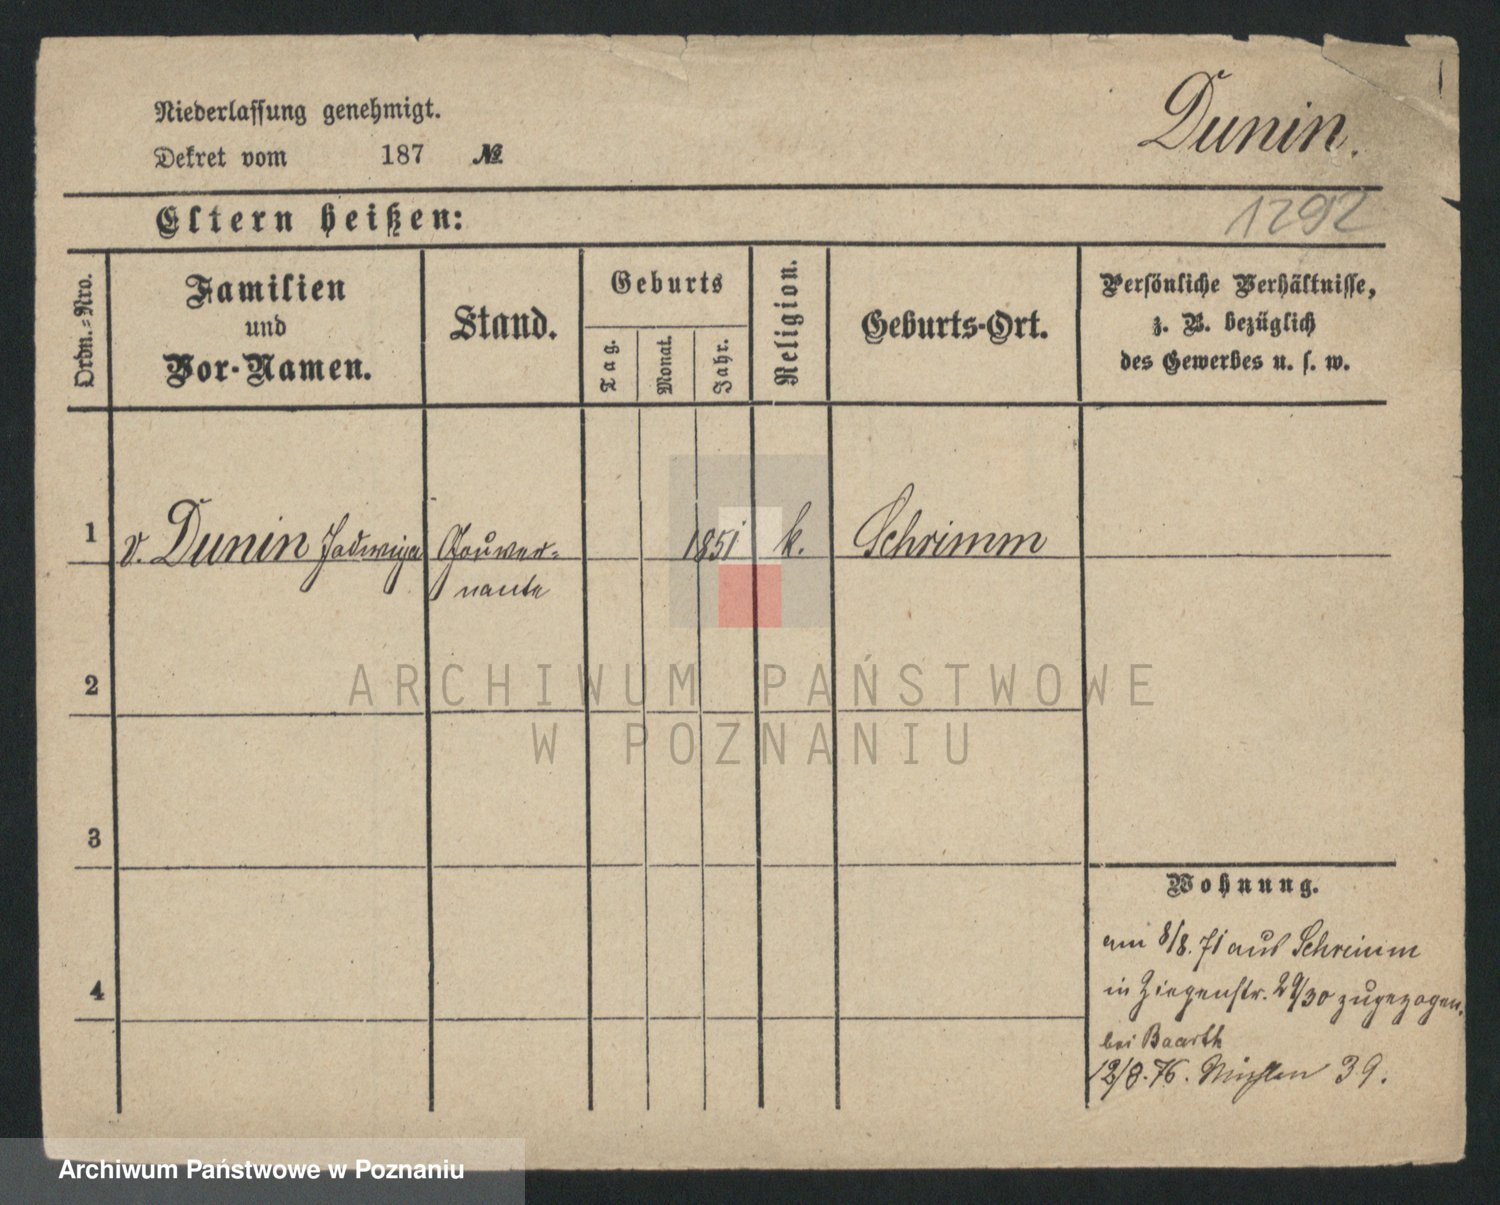 Niederlassung genehmigt.
Dekret vom 187 №
Dunin.
Eltern heißen:
1292
Ordn.=Nro.
Familien
und
Vor-Namen.
Stand.
Geburts
Tag.
Monat.
Jahr.
Religion.
Geburts-Ort.
Persönliche Verhältnisse,
z. B. bezüglich
des Gewerbes u. s. w.
1 v. Dunin Jadwiga Gouver= 1851 k. Schrimm
nante
2
3
4
Wohnung.
am 8/8. 71 aus Schrimm
in Ziegenstr. 29/30 zugezogen.
bei Baarth
12/8. 76. Mühlen 39.
ARCHIWUM PAŃSTWOWE
W POZNANIU
Archiwum Państwowe w Poznaniu